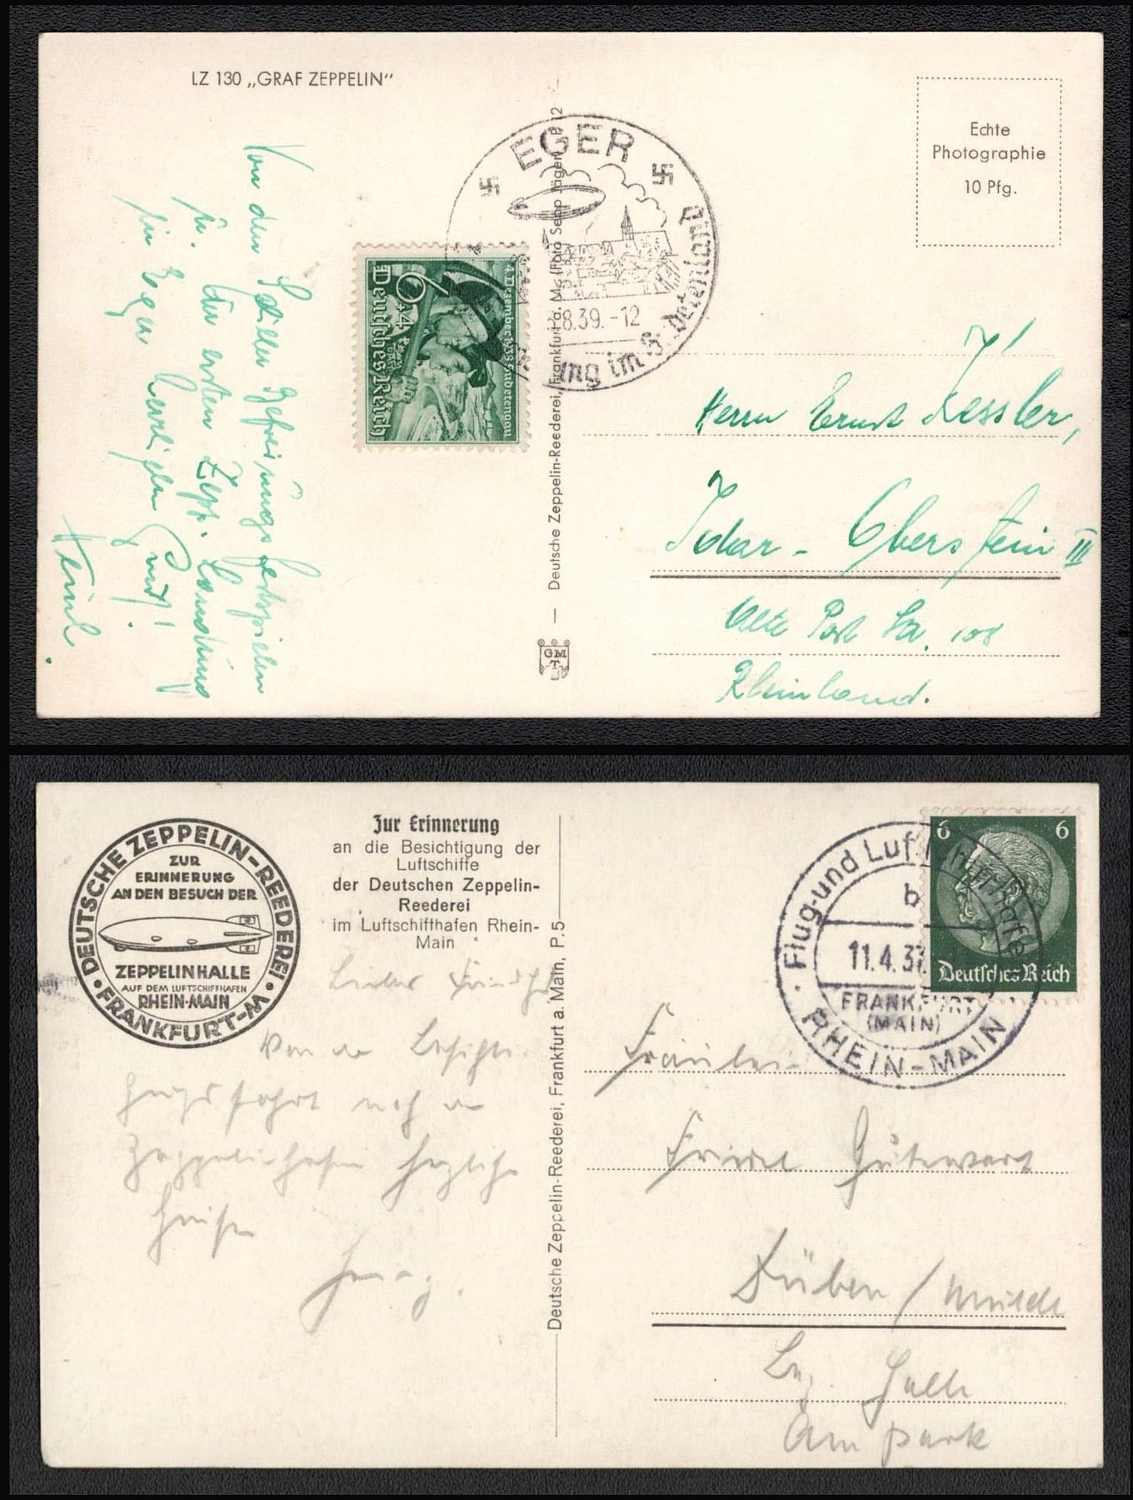 LZ 130 „GRAF ZEPPELIN“
Echte
Photographie
10 Pfg.
EGER
8.39.-12
ung im Sudetenland
6+4
4. Dezember 1938 Sudetengau
Deutsches Reich
Von den
u. der ersten Zepp. Landung
in Eger
Heinl.
Deutsche Zeppelin-Reederei, Frankfurt a. M. (Foto Sepp Jäger) P. 12
GM
T
Herrn Ernst Kessler,
Idar-Oberstein III
Alte Post Str. 108
Rheinland.
DEUTSCHE ZEPPELIN-REEDEREI
FRANKFURT-M
ZUR
ERINNERUNG
AN DEN BESUCH DER
ZEPPELINHALLE
AUF DEM LUFTSCHIFFHAFEN
RHEIN-MAIN
Zur Erinnerung
an die Besichtigung der
Luftschiffe
der Deutschen Zeppelin-
Reederei
im Luftschiffhafen Rhein-
Main
Deutsche Zeppelin-Reederei, Frankfurt a. Main, P.5
Flug- und Luftschiffhafen
b
11.4.37
FRANKFURT
(MAIN)
RHEIN-MAIN
6 6
Deutsches Reich
Von der Besichti-
gungsfahrt nach dem
Zeppelinhafen herzliche
Grüße
Fräulein
Friedel Gutewort
Düben / Mulde
Bez. Halle
Am Park